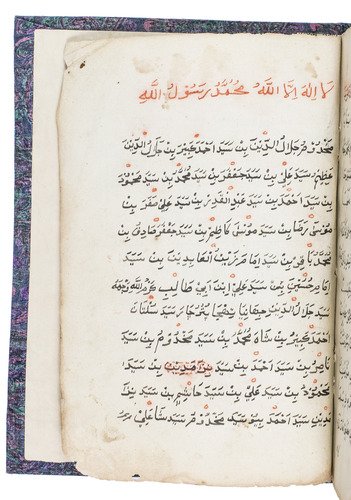 لا اله الا الله محمد رسول الله
مخدوم جلال الدين بن سيد احمد كبير بن جلال الدين
عظيم سيد علي بن سيد جعفر بن سيد محمد بن سيد محمود
بن سيد احمد بن سيد عبد القدير بن سيد علي صقر بن
موسى رضا بن سيد موسى كاظم بن سيد جعفر صادق بن
محمد باقر بن سيد امام زين العابدين بن سيد
امام حسين بن سيد علي ابن ابي طالب كرم الله وجهه
سيد جلال الدين بخاري سيد سلطان
احمد كبير بن شاه محمد بن سيد مخدوم بن سيد
ناصر بن سيد احمد بن سيد بن سيد
محمود بن سيد علي بن سيد هاشم بن سيد
بن سيد احمد بن سيد مخدوم سيد شاه علي